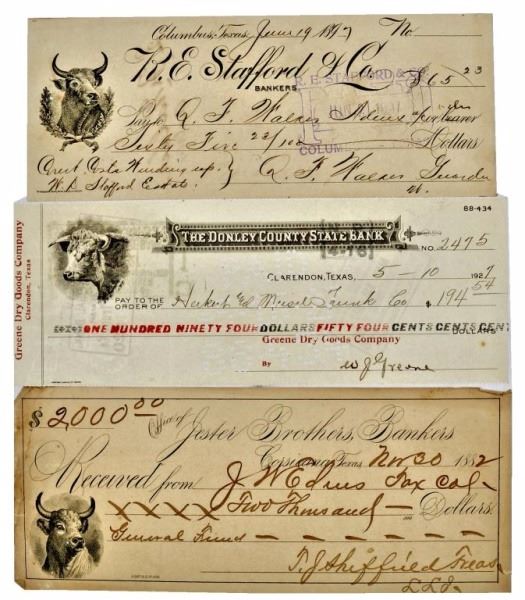 Columbus, Texas, June 19 1897 No
R. E. Stafford & Co.
BANKERS
$65 23
R. E. STAFFORD & CO.
COLUM
Pay to Q. F. Walker or bearer
Sixty Five 23/100 Dollars
W. S. Stafford Estate.
Q. F. Walker
88-434
THE DONLEY COUNTY STATE BANK
NO. 2475
CLARENDON, TEXAS, 5-10 1927
Greene Dry Goods Company
Clarendon, Texas
PAY TO THE
ORDER OF Trunk Co $194 54
ONE HUNDRED NINETY FOUR DOLLARS FIFTY FOUR CENTS CENTS CEN
DOLLARS
Greene Dry Goods Company
By W J Greene
$2000 00
Office of Jester Brothers, Bankers
Corsicana, Texas, Nov 30 1882
Received from J W Edens Tax Col
XXXX Two Thousand Dollars
General Fund
T. J. Sheffield Treas